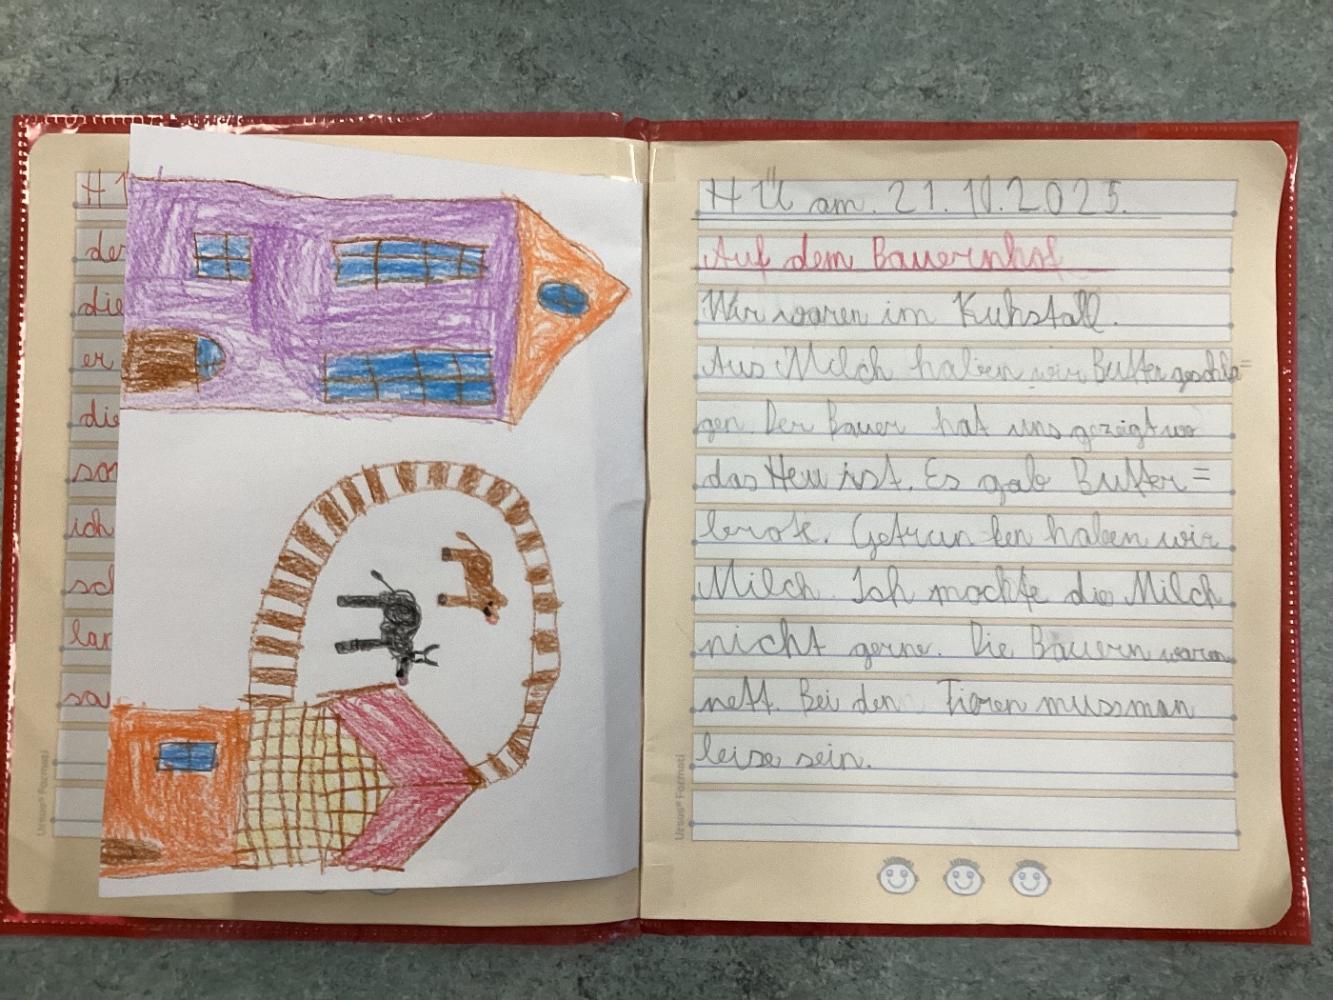 H
der
die
er
die
son
ich
sch
lan
sa
Ursus® Formati
HÜ am. 21. 10. 2025.
Auf dem Bauernhof
Wir waren im Kuhstall.
Aus Milch haben wir Butter geschla=
gen. Der Bauer hat uns gezeigt wo
das Heu ist. Es gab Butter=
brot. Getrunken haben wir
Milch. Ich mochte die Milch
nicht gerne. Die Bauern waren
nett. Bei den Tieren muss man
leise sein.
Ursus® Formati